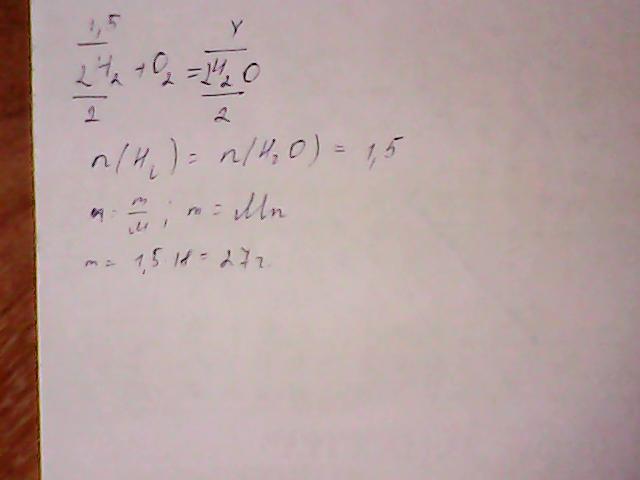 1,5 Y
2H₂ + O₂ = 2H₂O
2 2
n(H₂) = n(H₂O) = 1,5
n = m/M ; m = Mn
m = 1,5 18 = 27г.